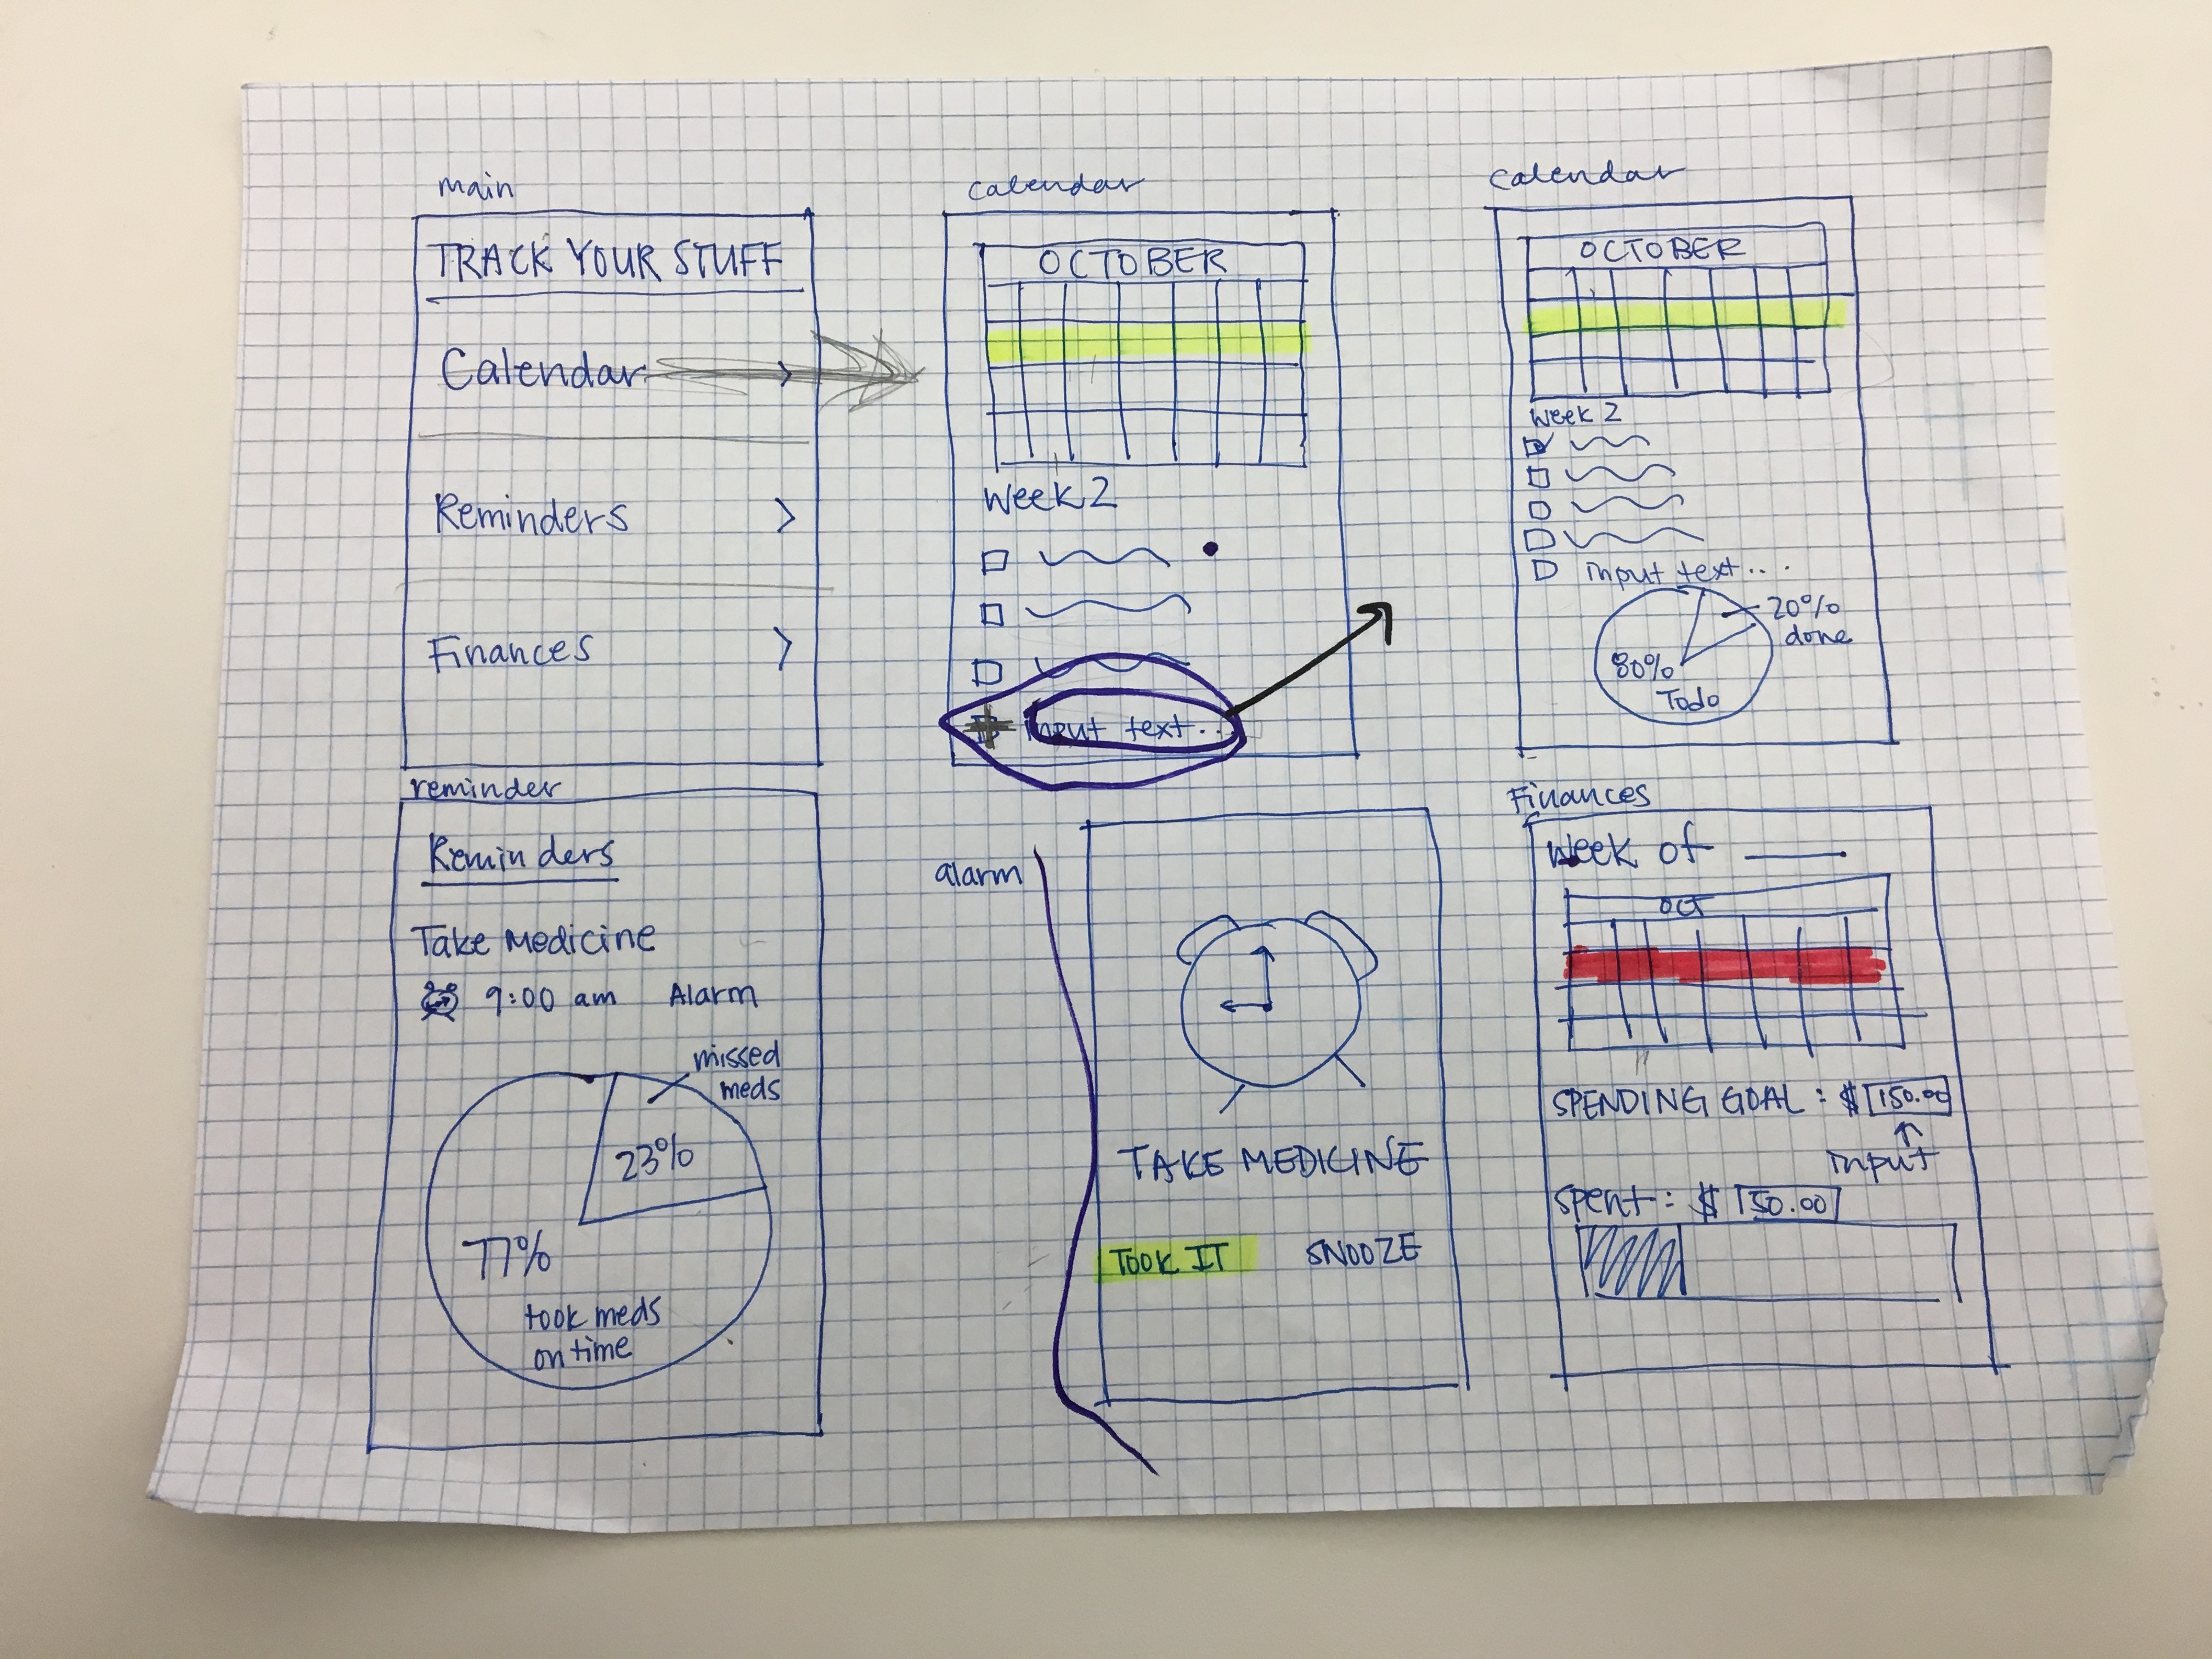 main
TRACK YOUR STUFF
Calendar >
Reminders >
Finances >
calendar
OCTOBER
Week 2
input text...
calendar
OCTOBER
Week 2
input text...
20%
done
80%
Todo
reminder
Reminders
Take Medicine
9:00 am Alarm
missed
meds
23%
77%
took meds
on time
alarm
TAKE MEDICINE
TOOK IT SNOOZE
Finances
Week of
OCT
SPENDING GOAL: $ 150.00
input
Spent: $ 50.00